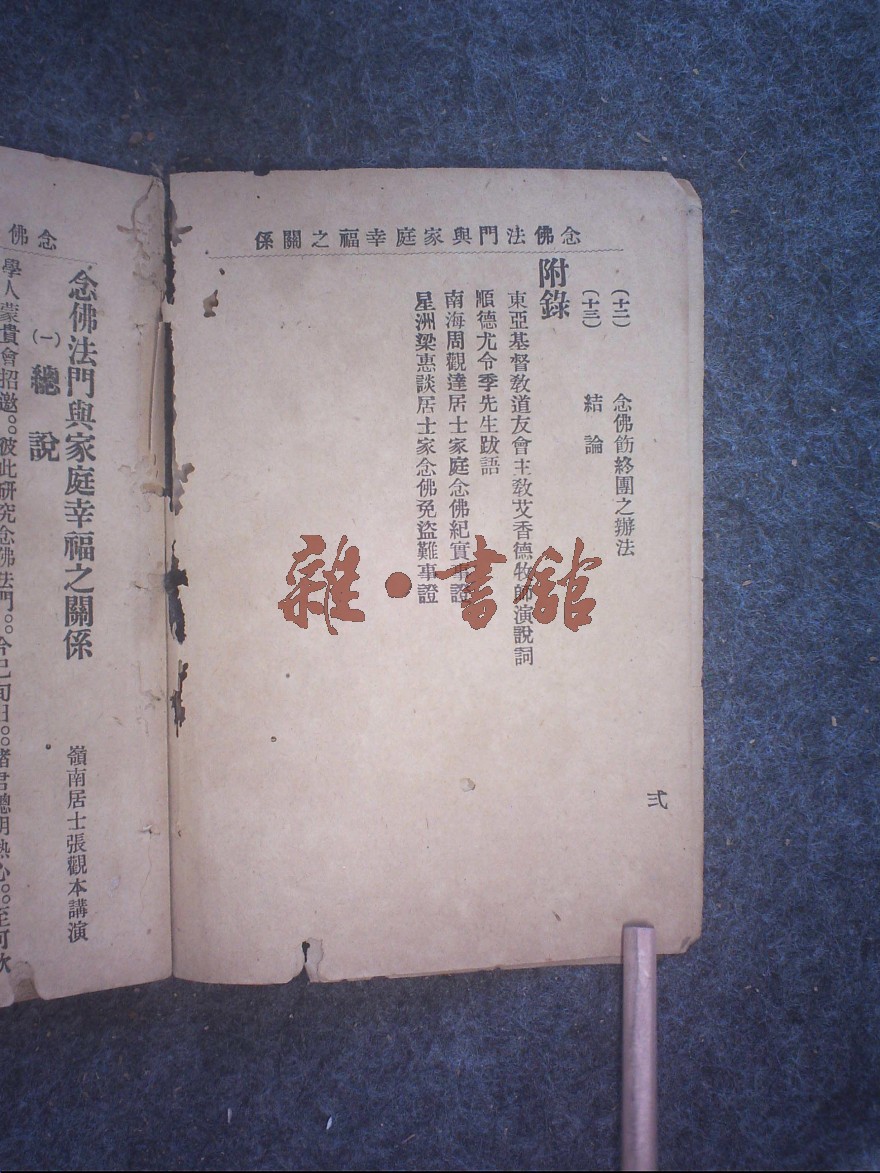 念佛法門與家庭幸福之關係
(十二) 念佛飭終團之辦法
(十三) 結論
附錄
東亞基督教道友會主教艾香德牧師演說詞
順德尤令季先生跋語
南海周觀達居士家庭念佛紀實事證
星洲梁惠談居士家念佛免盜難事證
弍
雜·書館
念佛
念佛法門與家庭幸福之關係
嶺南居士張觀本講演
(一) 總說
學人蒙貴會招邀。。彼此研究念佛法門。。今已旬日。。諸君聰明熱心。。至可欽